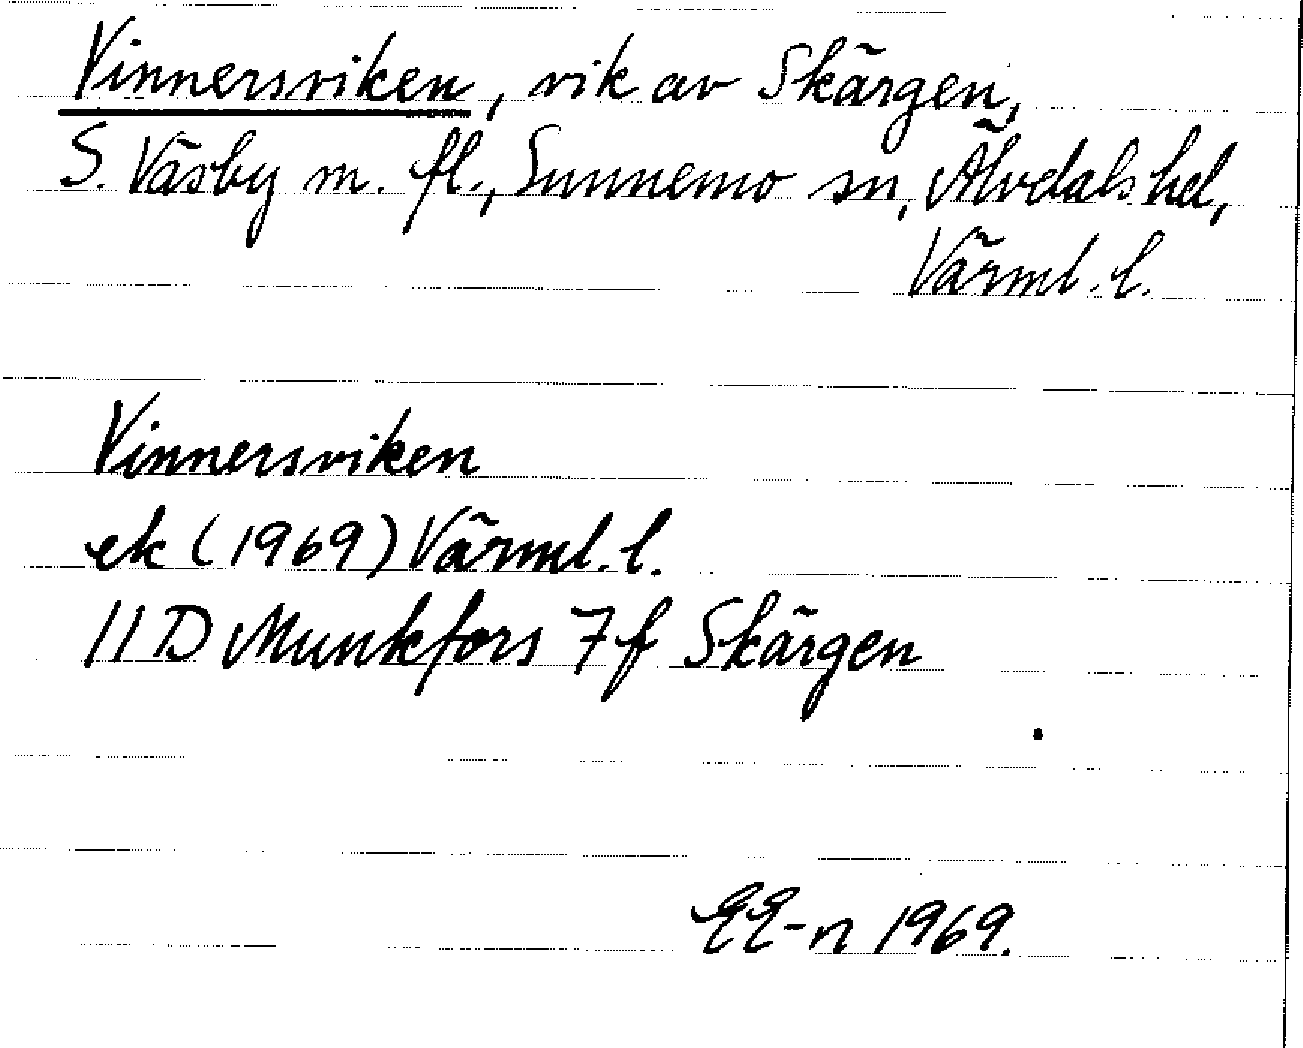 Vinnersviken, vik av Skärgen,
S. Väsby m. fl., Sunnemo sn, Älvdals hd,
Värml. l.
Vinnersviken
ek (1969) Värml. l.
11 D Munkfors 7 f Skärgen
EE-n 1969.